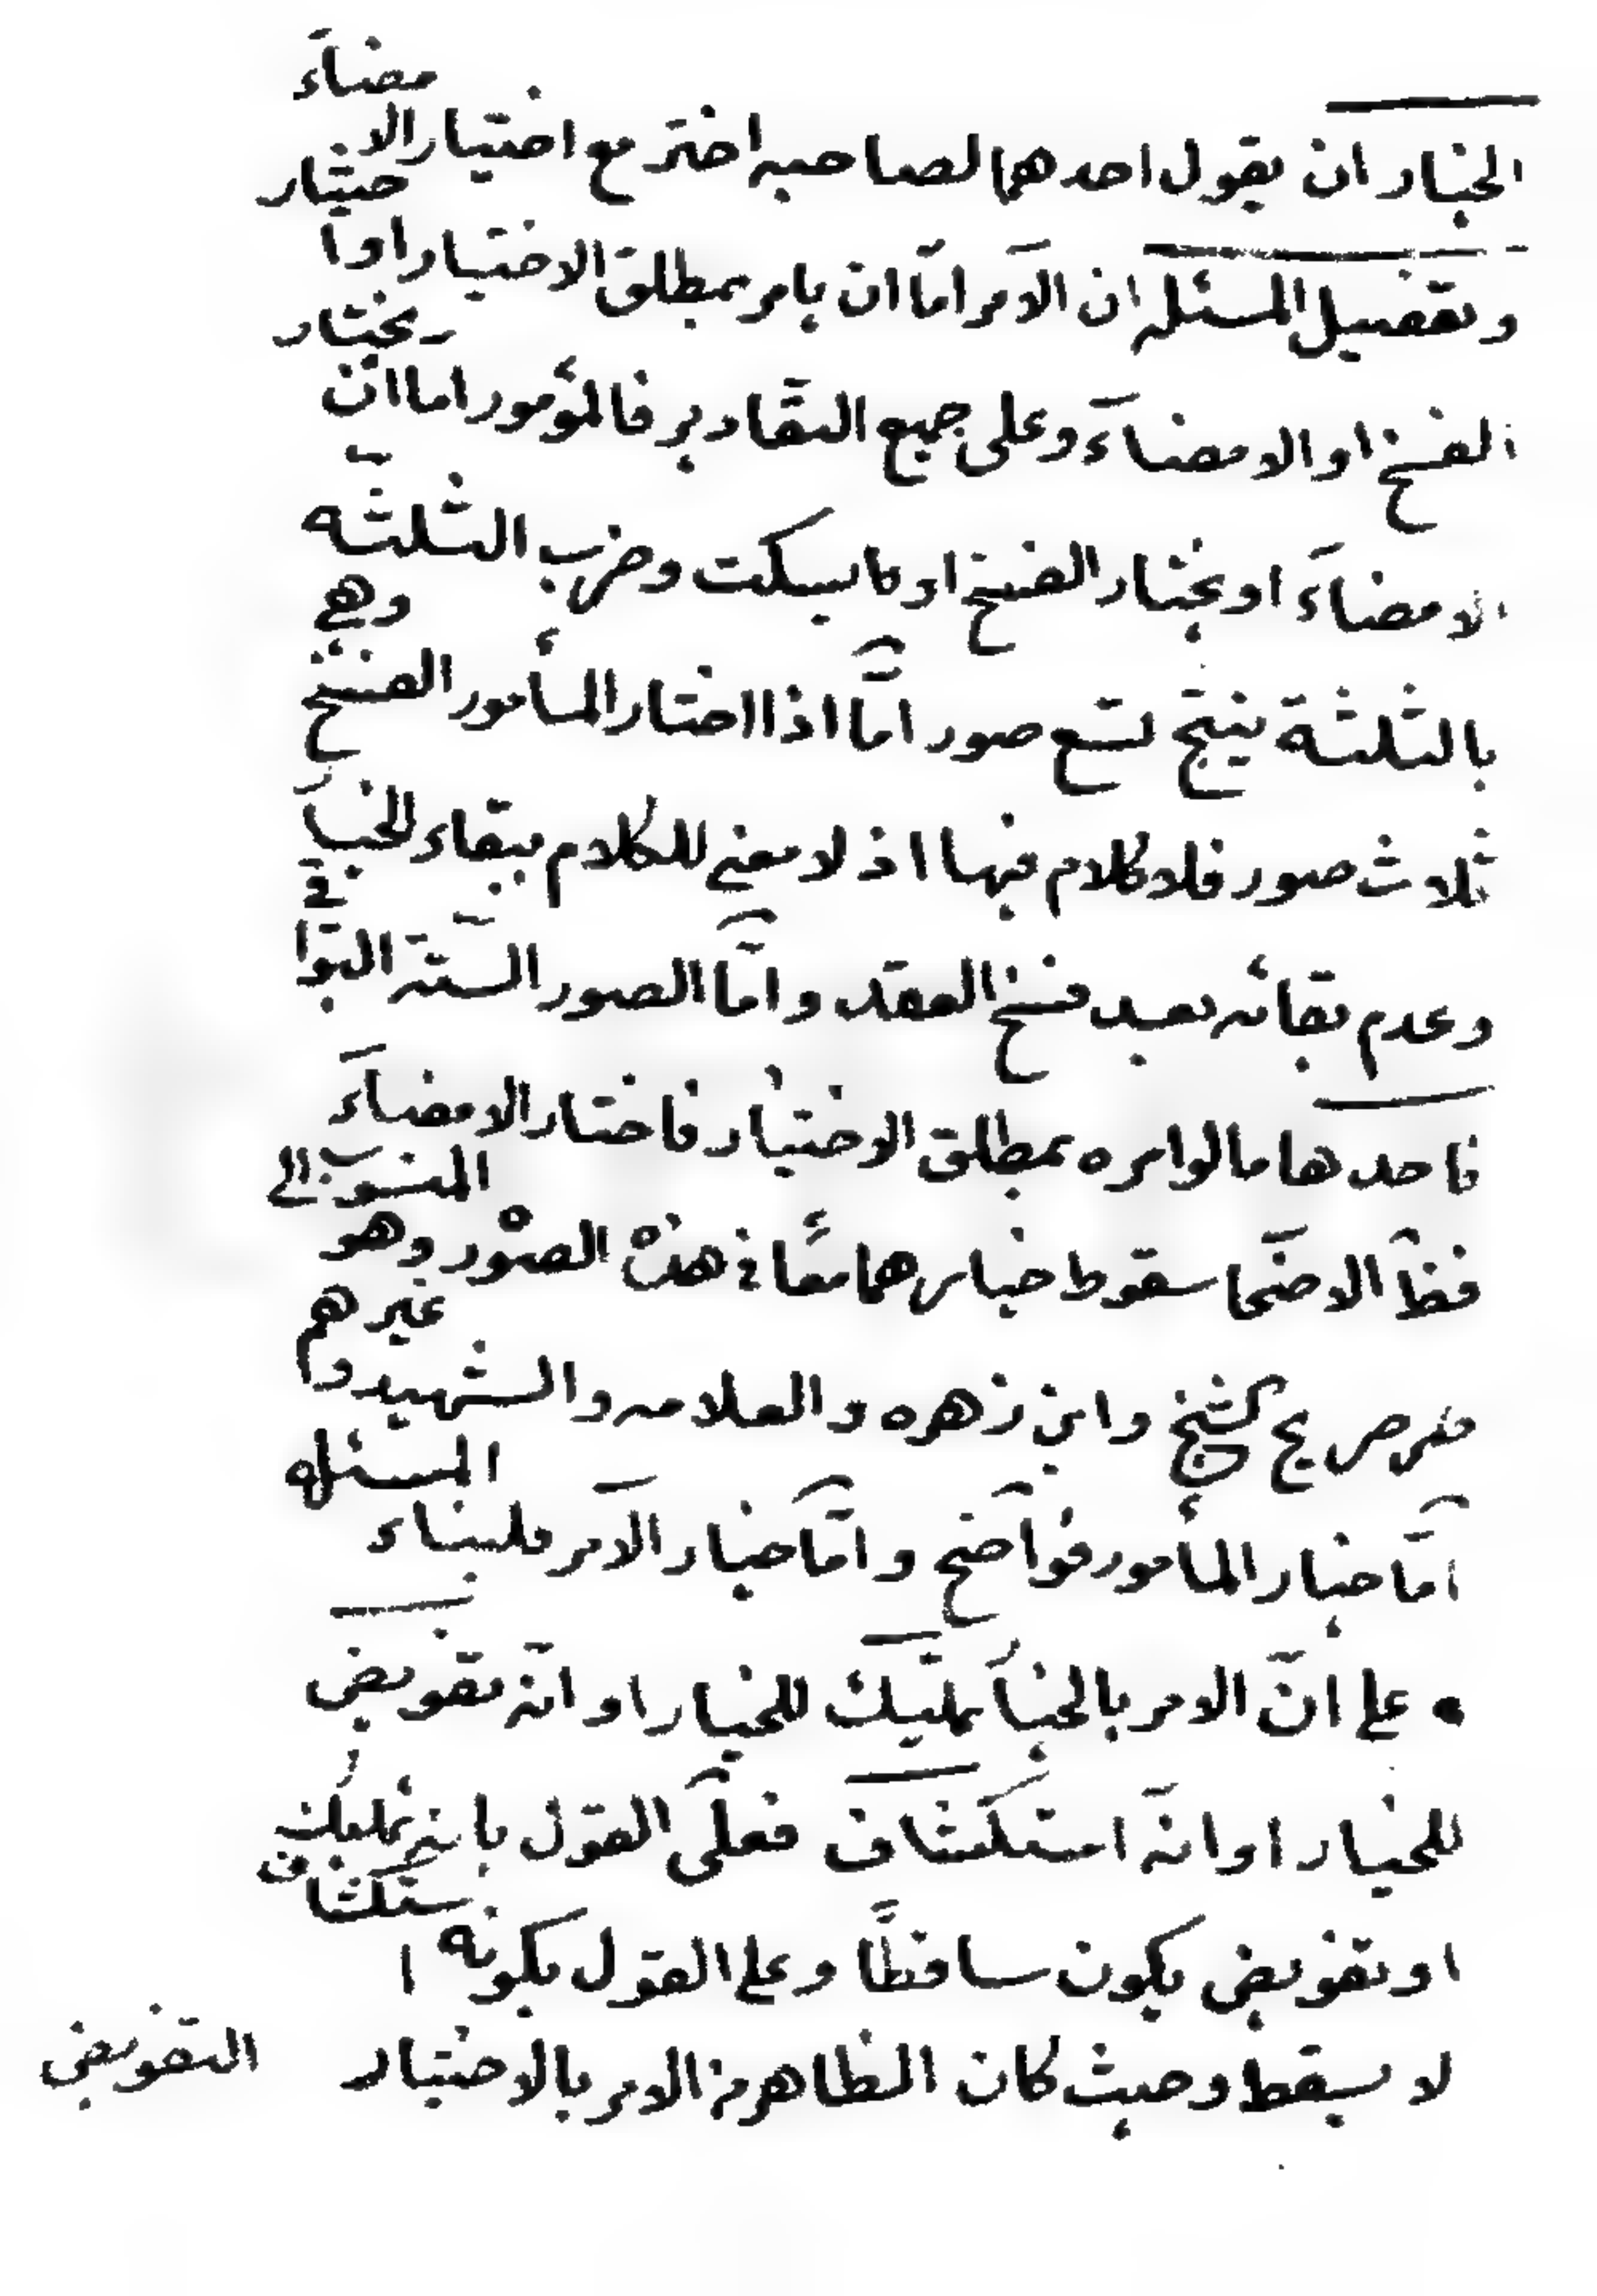 الخيار ان يقول احدهما لصاحبه اختر مع اختيار الامضاء
وتفصيل المسئله ان الآمر امّا ان يامر بمطلق الاختيار او باختيار
الفسخ او الامضاء وعلى جميع التقادير فالمؤمور اما ان يختار
الامضاء او يختار الفسخ او يسكت وضرب الثلثه
بالثلثة ينتج تسع صور امّا اذا اختار المأمور الفسخ وهي
ثلاث صور فلا كلام فيها اذ لا معنى للكلام ببقاء الخيار
وعدم بقائه بعد فسخ العقد وامّا الصور الستّة البواقي
فاحدها ما لو امره بمطلق الاختيار فاختار الامضاء
فظ الاصحا سقوط خيارهما معًا في هذه الصوره وهو المنسوب الى
صريح الشيخ وابن زهره والعلامه والشهيد وغيرهم
امّا خيار المأمور فواضح وامّا خيار الآمر فلبناء المسئله
على انّ الامر بالخيار تمليك للخيار او انّه تفويض
للخيار او انّه استكشاف فعلى القول بانه تمليك
او تفويض يكون ساقطًا وعلى القول بكونه استكشاف
لا يسقط وحيث كان الظاهر من الامر بالاختيار التفويض